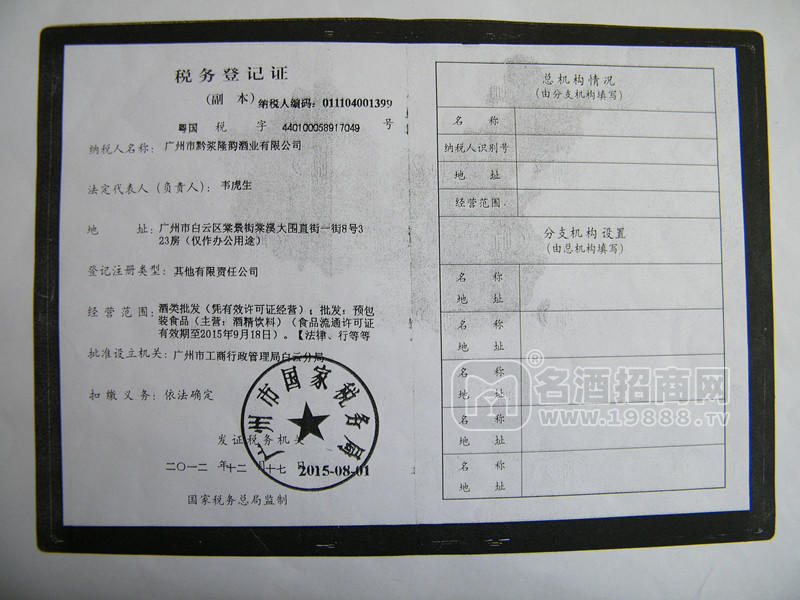 税务登记证
(副 本) 纳税人编码：011104001399
粤国 税 字 440100058917049 号
纳税人名称： 广州市黔浆隆韵酒业有限公司
法定代表人（负责人）： 韦虎生
地 址： 广州市白云区棠景街棠溪大围直街一街8号3
23房（仅作办公用途）
登记注册类型： 其他有限责任公司
经营范围： 酒类批发（凭有效许可证经营）；批发：预包
装食品（主营：酒精饮料）（食品流通许可证
有效期至2015年9月18日）。【法律、行等等
批准设立机关： 广州市工商行政管理局白云分局
扣缴义务： 依法确定
广州市国家税务局
发证税务机关
二〇一二 年十二 月十七 日
2015-08-01
国家税务总局监制
总机构情况
(由分支机构填写)
名 称
纳税人识别号
地 址
经营范围
分支机构设置
(由总机构填写)
名 称
地 址
名 称
地 址
名 称
地 址
名 称
地 址
名 称
地 址
名酒招商网
www.19888.tv
®